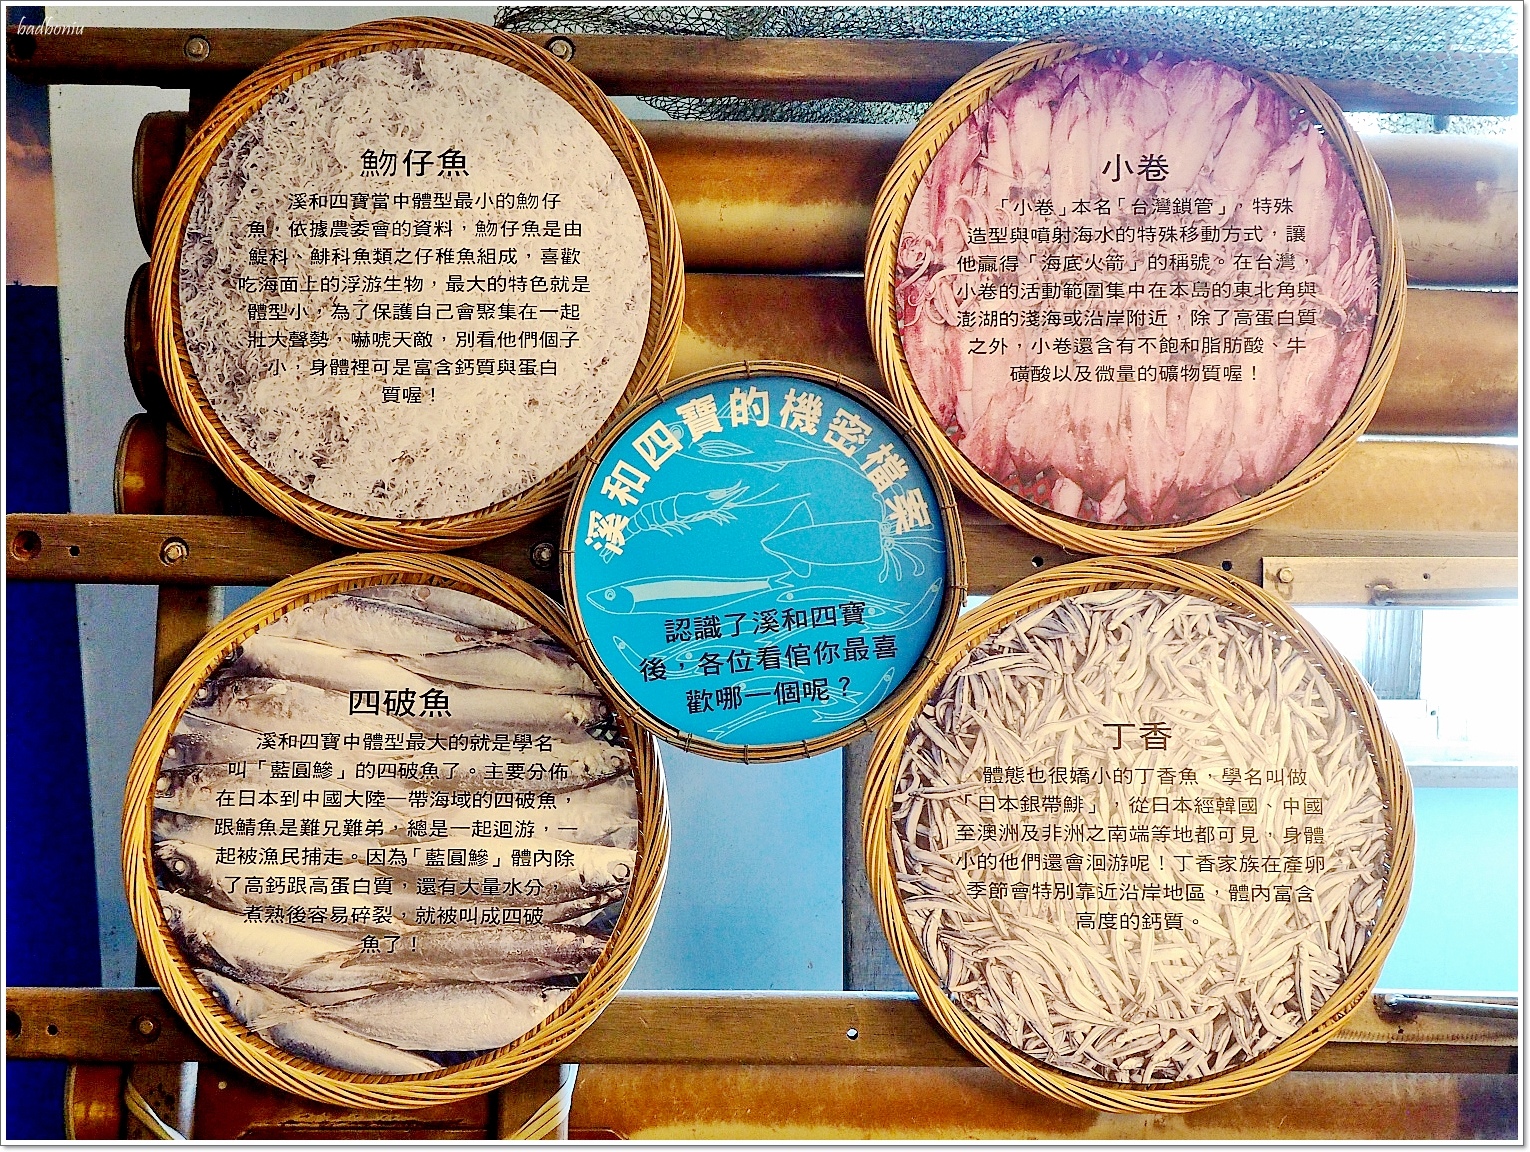 badboniu
魩仔魚
溪和四寶當中體型最小的魩仔
魚，依據農委會的資料，魩仔魚是由
鯷科、鯡科魚類之仔稚魚組成，喜歡
吃海面上的浮游生物，最大的特色就是
體型小，為了保護自己會聚集在一起
壯大聲勢，嚇唬天敵，別看他們個子
小，身體裡可是富含鈣質與蛋白
質喔！
小卷
「小卷」本名「台灣鎖管」，特殊
造型與噴射海水的特殊移動方式，讓
他贏得「海底火箭」的稱號。在台灣，
小卷的活動範圍集中在本島的東北角與
澎湖的淺海或沿岸附近，除了高蛋白質
之外，小卷還含有不飽和脂肪酸、牛
磺酸以及微量的礦物質喔！
溪和四寶的機密檔案
認識了溪和四寶
後，各位看倌你最喜
歡哪一個呢？
四破魚
溪和四寶中體型最大的就是學名
叫「藍圓鰺」的四破魚了。主要分佈
在日本到中國大陸一帶海域的四破魚，
跟鯖魚是難兄難弟，總是一起迴游，一
起被漁民捕走。因為「藍圓鰺」體內除
了高鈣跟高蛋白質，還有大量水分，
煮熟後容易碎裂，就被叫成四破
魚了！
丁香
體態也很嬌小的丁香魚，學名叫做
「日本銀帶鯡」，從日本經韓國、中國
至澳洲及非洲之南端等地都可見，身體
小的他們還會洄游呢！丁香家族在產卵
季節會特別靠近沿岸地區，體內富含
高度的鈣質。